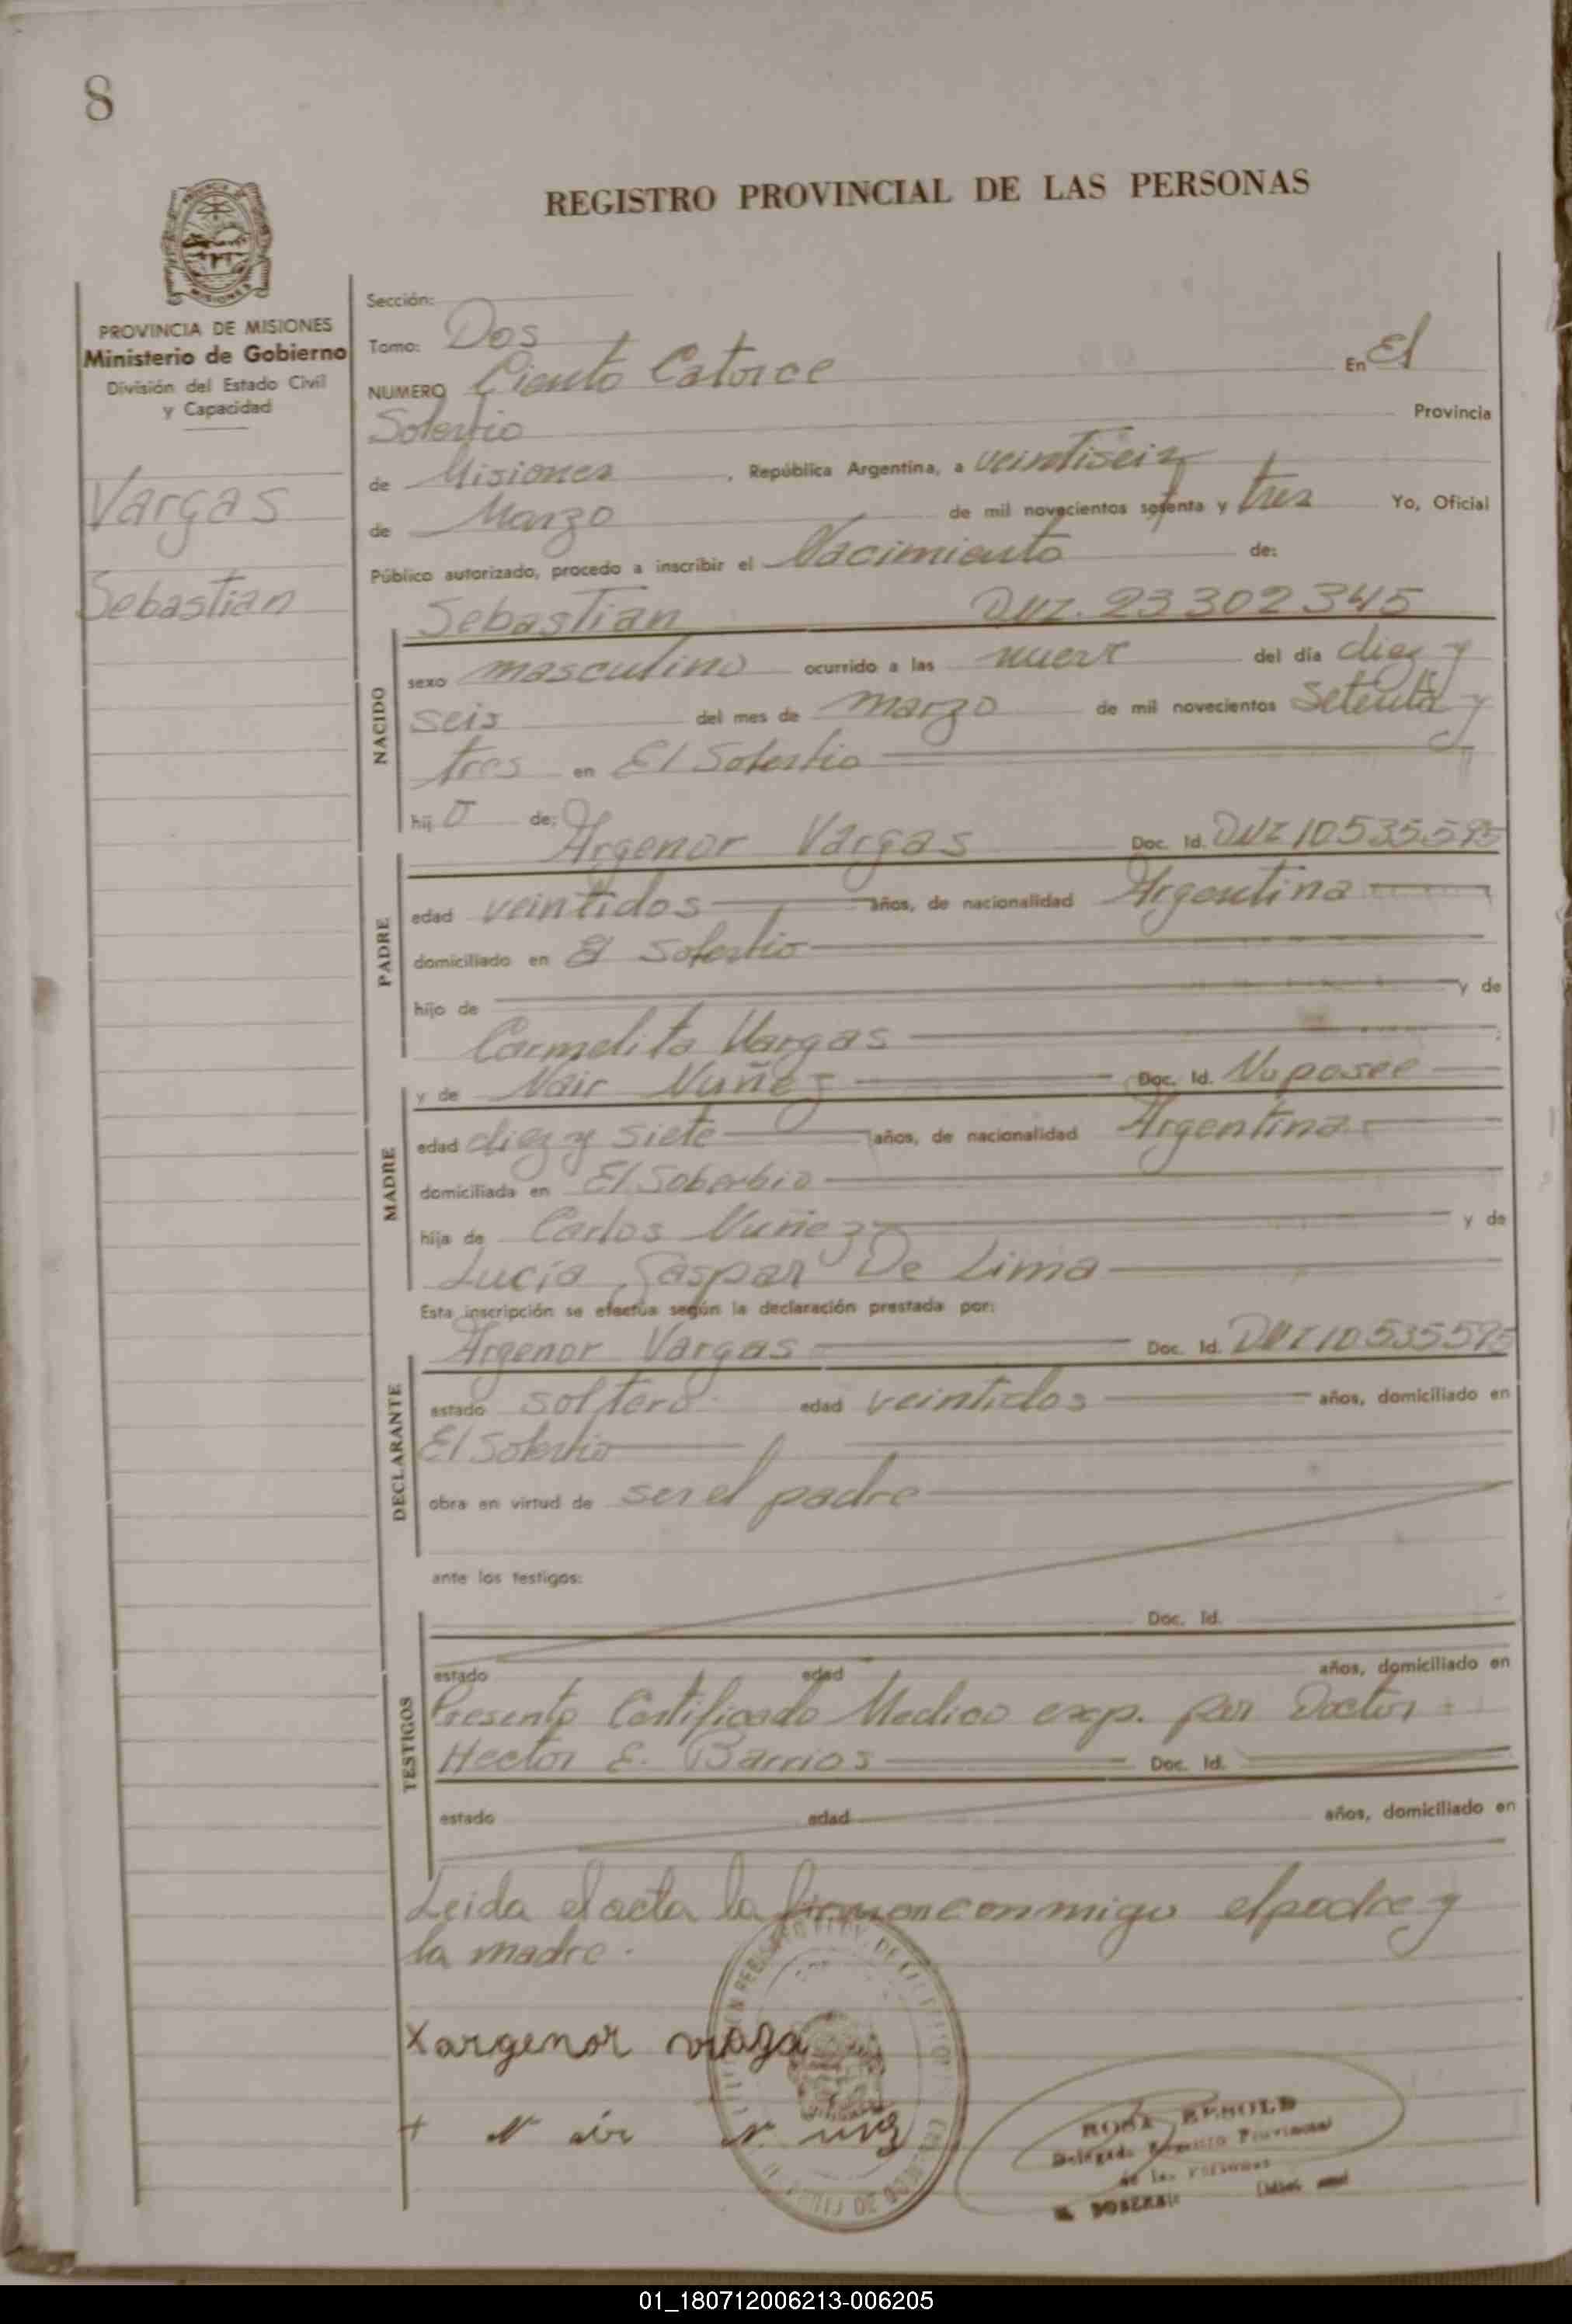 8
REGISTRO PROVINCIAL DE LAS PERSONAS
MISIONES
PROVINCIA DE MISIONES
Ministerio de Gobierno
División del Estado Civil
y Capacidad
Vargas
Sebastian
Sección:
Tomo: Dos
NUMERO Ciento Catorce En El
Soberbio Provincia
de Misiones , República Argentina, a veintiseis
de Marzo de mil novecientos setenta y tres Yo, Oficial
Público autorizado, procedo a inscribir el Nacimiento de:
Sebastian DNI. 23302345
NACIDO
sexo masculino ocurrido a las nueve del día diez y
seis del mes de marzo de mil novecientos setenta y
tres en El Soberbio
hij o de:
PADRE
Argenor Vargas Doc. Id. DNI 10535595
edad veintidos años, de nacionalidad Argentina
domiciliado en El Soberbio
hijo de y de
Carmelita Vargas
MADRE
y de Nair Nuñez Doc. Id. No posee
edad diez y siete años, de nacionalidad Argentina
domiciliada en El Soberbio
hija de Carlos Nuñez y de
Lucia Gaspar De Lima
Esta inscripción se efectúa según la declaración prestada por:
DECLARANTE
Argenor Vargas Doc. Id. DNI 10535595
estado soltero edad veintidos años, domiciliado en
El Soberbio
obra en virtud de ser el padre
ante los testigos:
TESTIGOS
Doc. Id.
estado edad años, domiciliado en
Presento Certificado Medico exp. por Doctor
Hector E. Barrios Doc. Id.
estado edad años, domiciliado en
Leida el acta la firman conmigo el padre y
la madre.
X argenor
+ N air
ROSA
Delegada Registro Provincial
de las Personas
EL SOBERBIO
01_180712006213-006205